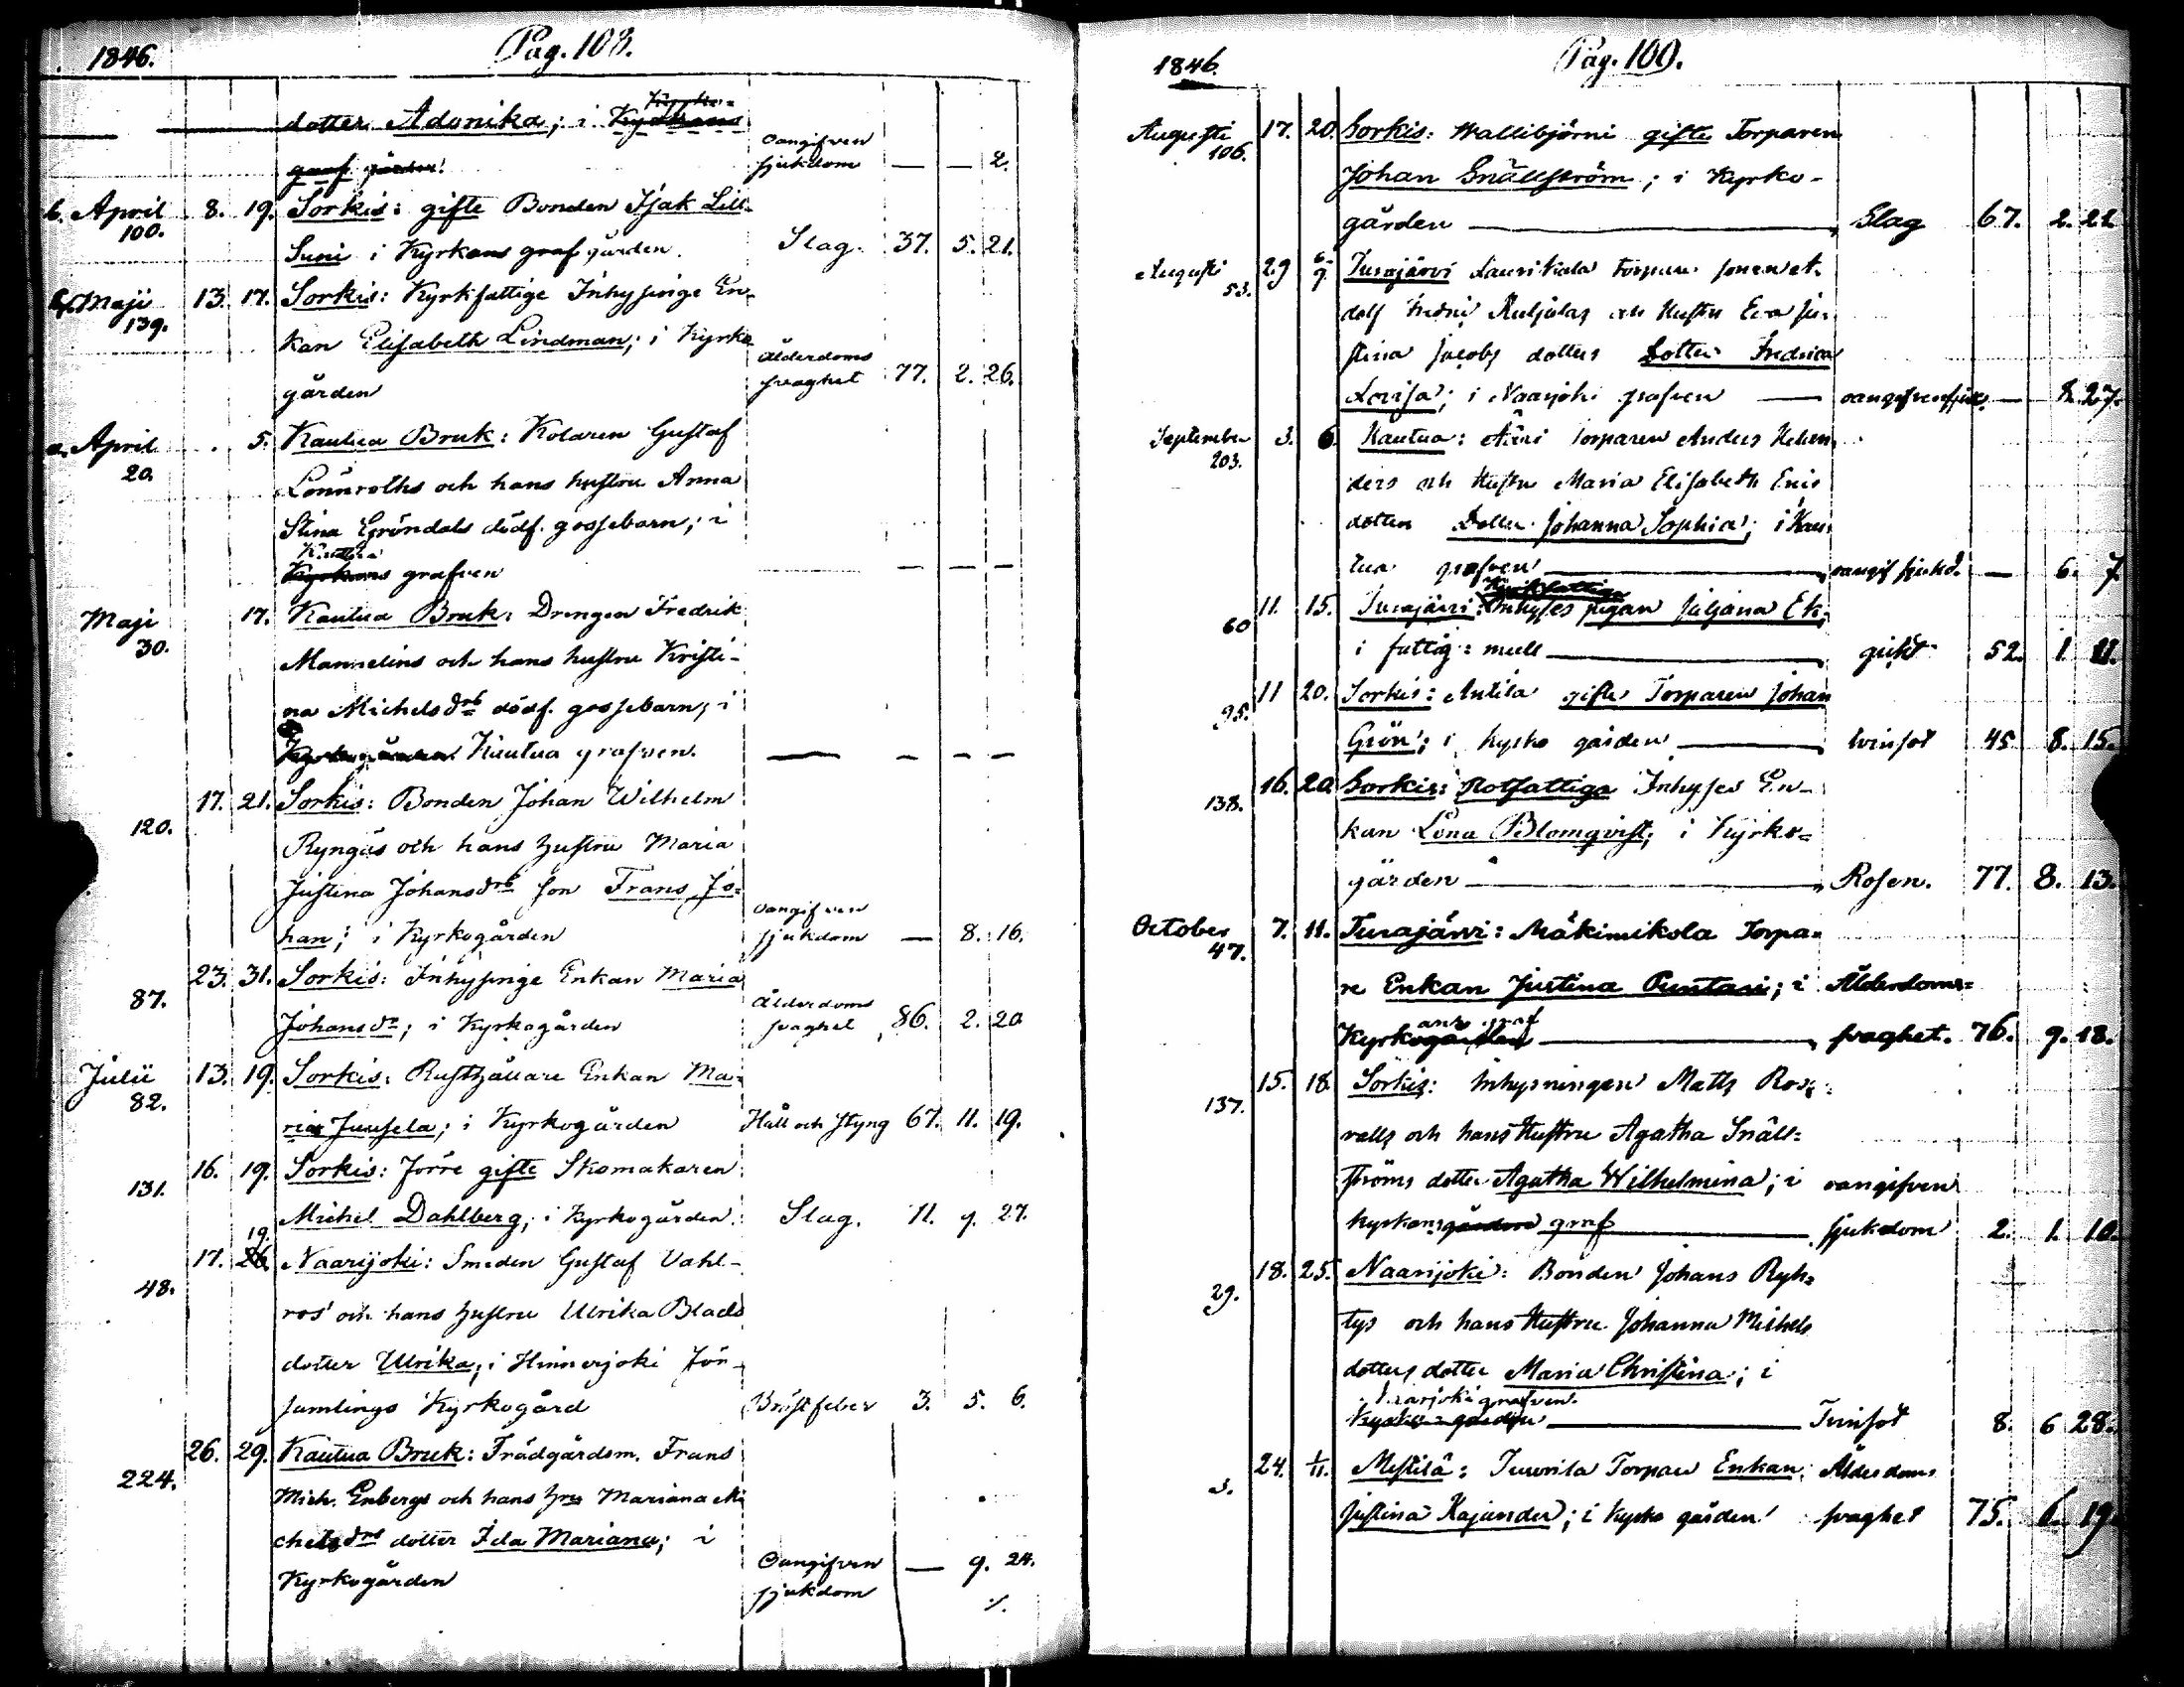 1846. Pag. 108.
dotter Adonika; i Kyrkans
graf
Oangifven
sjukdom — — 2.
b. April 8. 19. Sorkis: gifte Bonden Isak Lill-
100.
Suni i Kyrkans graf gården. Slag. 37. 5. 21.
c. Maji 13. 17. Sorkis: Kyrkfattige Inhysinge En-
139.
kan Elisabeth Lindman; i Kyrko
gården
Ålderdoms
svaghet 77. 2. 26.
a. April . 5. Kautua Bruk: Kolaren Gustaf
20.
Lönnroths och hans hustru Anna
Stina Gröndals dödf. gossebarn; i
Kautua
Kyrkans grafven — — —
Maji 17. Kautua Bruk: Drengen Fredrik
30.
Mannelins och hans hustru Kristi-
na Michelsdrs dödf. gossebarn; i
Kyrkogården Kautua grafven. — — — —
17. 21. Sorkis: Bonden Johan Wilhelm
120.
Ryngäs och hans hustru Maria
Justina Johansdrs son Frans Jo-
han; i Kyrkogården
Oangifven
sjukdom — 8. 16.
23. 31. Sorkis: Inhysinge Enkan Maria
87.
Johansdr; i Kyrkogården
Ålderdoms
svaghet 86. 2. 20
Julii 13. 19. Sorkis: Rusthållare Enkan Ma-
82.
ria Juusela; i Kyrkogården Håll och styng 67. 11. 19.
16. 19. Sorkis: Jorre gifte Skomakaren
131.
Michel Dahlberg; i Kyrkogården. Slag. 71. 9. 27.
19.
17. 26 Naarijoki: Smeden Gustaf Vahl-
48.
ros och hans hustru Ulrika Blads
dotter Ulrika; i Hinnerjoki För-
samlings Kyrkogård Bröstfeber 3. 5. 6.
26. 29. Kautua Bruk: Trädgårdsm. Frans
224.
Mich. Enbergs och hans hru Mariana Mi
chelsdrs dotter Ida Mariana; i
Kyrkogården
Oangifven
sjukdom — 9. 24.
1846. Pag. 109.
Augusti 17. 20. Sorkis: Wallibjörni gifte Torparen
106.
Johan Snällström; i Kyrko-
gården — Slag 67. 2. 22
Augusti 29 6/9. Turajärvi Laurikala Torpare sonen
53.
och Hustru Eva Ju-
stina Jacobs dotters dotter Fredrica
Lovisa; i Naarijoki grafven — oangifven sjuk. — 8. 27.
September 3. 6. Kautua: Torparen Anders
203.
ders och Hustru Maria Elisabeth Eric
dotters Dotter Johanna Sophia; i Kau-
tua grafven — oangif sjukd. — 6. 7.
Kyrkfattiga
11. 15. Turajärvi: Inhyses pigan Juliana Ek;
60
i fattig: mull — gikt 52. 1. 21.
11 20. Sorkis: Antila gifte Torparen Johan
95.
Grön; i Kyrko gården — tvinsot 45 8. 15.
16. 20. Sorkis: Rotfattiga Inhyses En-
138.
kan Lena Blomqvist; i Kyrko-
gården — Rosen. 77. 8. 13.
October 7. 11. Turajärvi: Mäkimikola Torpa-
47.
re Enkan Justina Puntari; i Ålderdoms-
ans graf
Kyrkogården — svaghet. 76. 9. 18.
15. 18. Sorkis: Inhysningen Matts Ros-
137.
valls och hans Hustru Agatha Snäll-
ströms dotter Agatha Wilhelmina; i oangifven
kyrkans gården graf — sjukdom 2. 1. 10.
18. 25. Naarijoki: Bonden Johans Ryh-
29.
tys och hans Hustru Johanna Michels
dotters dotter Maria Christina; i
Naarjoki grafven.
Kyrko-gården — Tvinsot 8. 6 28.
24. 1/11. Mestilä: Juurila Torpare Enkan Ålderdoms
Justina Kajander; i Kyrko gården svaghet 75. 6. 19.